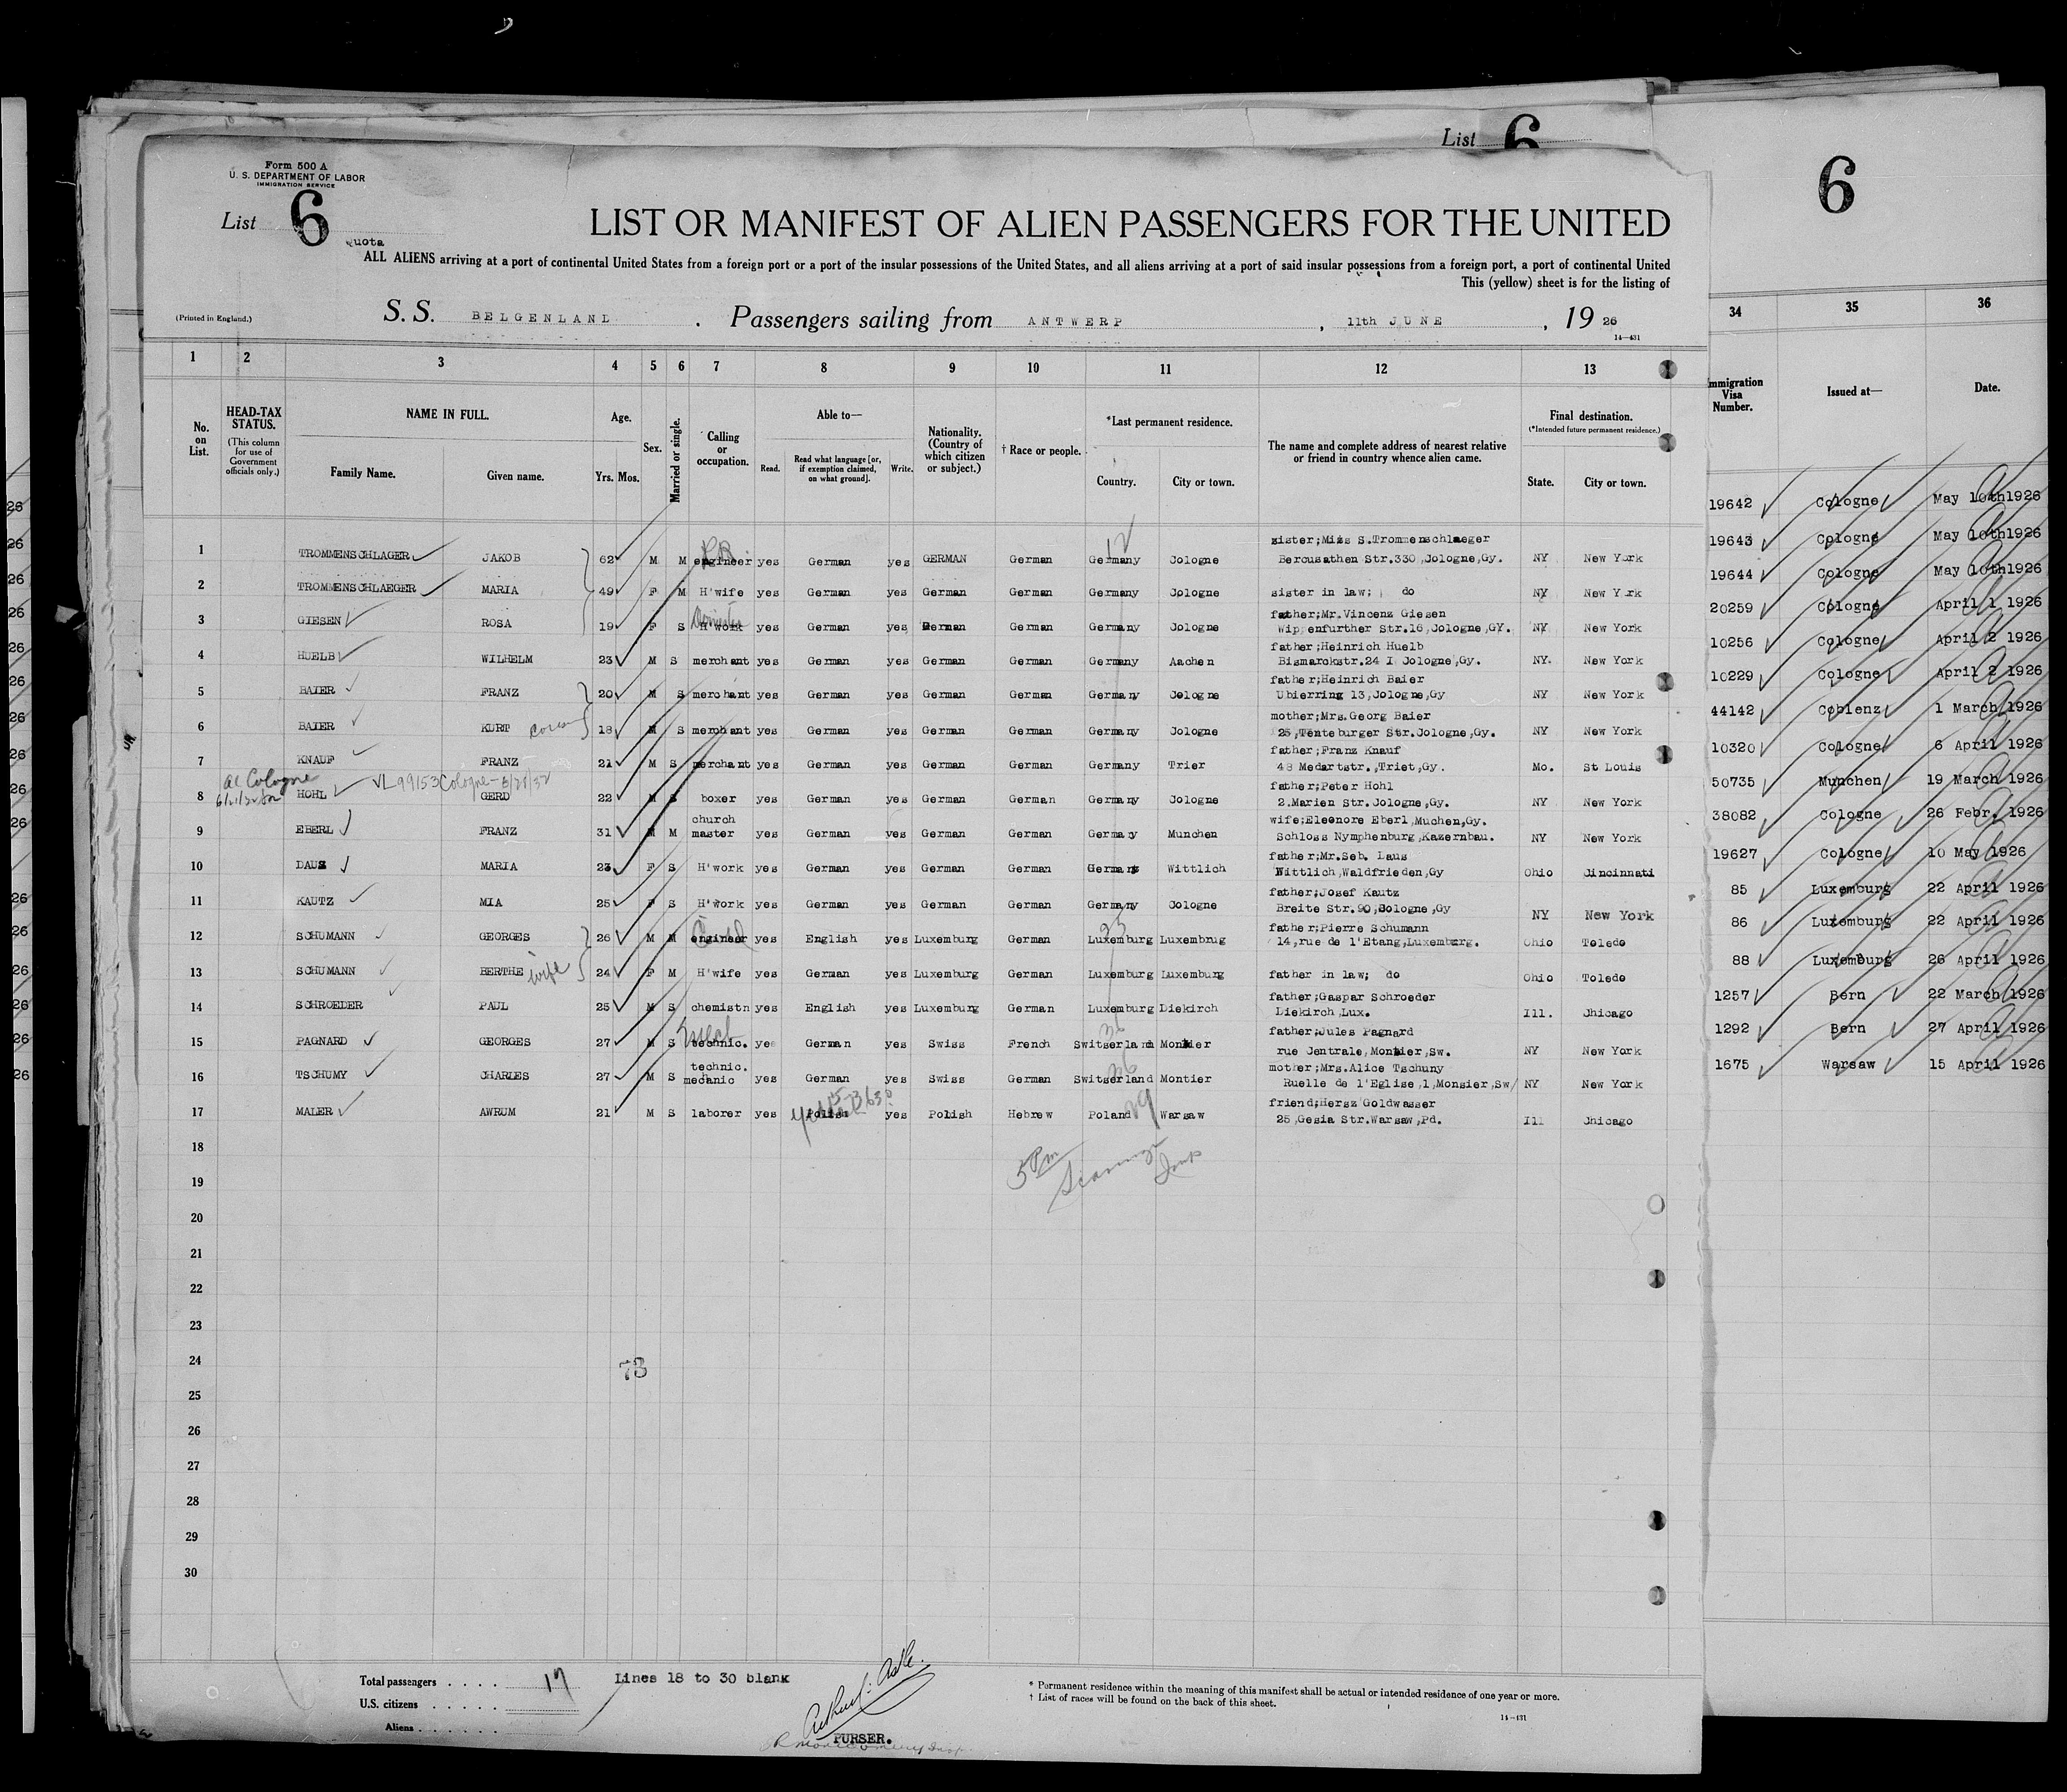 List 6
6
Form 500 A
U. S. DEPARTMENT OF LABOR
IMMIGRATION SERVICE
List 6
LIST OR MANIFEST OF ALIEN PASSENGERS FOR THE UNITED
Quota
ALL ALIENS arriving at a port of continental United States from a foreign port or a port of the insular possessions of the United States, and all aliens arriving at a port of said insular possessions from a foreign port, a port of continental United
This (yellow) sheet is for the listing of
(Printed in England.)
S. S. BELGENLAND . Passengers sailing from ANTWERP , 11th JUNE , 19 26
14—431
1 2 3 4 5 6 7 8 9 10 11 12 13 34 35 36
No. on List.
HEAD-TAX STATUS.
(This column for use of Government officials only.)
NAME IN FULL.
Family Name. Given name.
Age.
Yrs. Mos.
Sex.
Married or single.
Calling or occupation.
Able to—
Read. Read what language [or, if exemption claimed, on what ground]. Write.
Nationality. (Country of which citizen or subject.)
† Race or people.
*Last permanent residence.
Country. City or town.
The name and complete address of nearest relative or friend in country whence alien came.
Final destination.
(*Intended future permanent residence.)
State. City or town.
Immigration Visa Number.
Issued at—
Date.
1 TROMMENSCHLAGER JAKOB 62 M M engineer yes German yes GERMAN German Germany Cologne sister;Miss S.Trommenschlaeger
Bercusathen Str.330,Cologne,Gy. NY New York
2 TROMMENSCHLAEGER MARIA 49 F M H'wife yes German yes German German Germany Cologne sister in law; do NY New York
3 GIESEN ROSA 19 F S H'work yes German yes German German Germany Cologne father;Mr.Vincenz Giesen
Domestic
Wippenfurther Str.16,Cologne,GY. NY New York
4 HUELB WILHELM 23 M S merchant yes German yes German German Germany Aachen father;Heinrich Huelb
Bismarckstr.24 I Cologne,Gy. NY. New York
5 BAIER FRANZ 20 M S merchant yes German yes German German Germany Cologne father;Heinrich Baier
Ubierring 13,Cologne,Gy NY New York
6 BAIER KURT cousin 18 M S merchant yes German yes German German Germany Cologne mother;Mrs.Georg Baier
25,Tenteburger Str.Cologne,Gy. NY New York
7 KNAUF FRANZ 21 M S merchant yes German yes German German Germany Trier father;Franz Knauf
48 Medartstr.,Triet,Gy. Mo. St Louis
VL 99153 Cologne - 5/28/32
8 HOHL GERD 22 M S boxer yes German yes German German Germany Cologne father;Peter Hohl
2.Marien Str.Cologne,Gy. NY New York
9 EBERL FRANZ 31 M M church master yes German yes German German Germany Munchen wife;Eleonore Eberl,Muchen,Gy.
Schloss Nymphenburg,Kazernbau. NY New York
10 DAUS MARIA 23 F S H'work yes German yes German German Germany Wittlich father;Mr.Seb. Laus
Wittlich,Waldfrieden,Gy Ohio Cincinnati
11 KAUTZ MIA 25 F S H'work yes German yes German German Germany Cologne father;Josef Kautz
Breite Str.90,Cologne,Gy NY New York
12 SCHUMANN GEORGES 26 M M engineer yes English yes Luxemburg German Luxemburg Luxembrug father;Pierre Schumann
14,rue de l'Etang,Luxemburg. Ohio Toledo
13 SCHUMANN BERTHE wife 24 F M H'wife yes German yes Luxemburg German Luxemburg Luxemburg father in law; do Ohio Toledo
14 SCHROEDER PAUL 25 M S chemistn yes English yes Luxemburg German Luxemburg Diekirch father;Gaspar Schroeder
Diekirch,Lux. Ill. Chicago
15 PAGNARD GEORGES 27 M S technic. yes German yes Swiss French Switserland Montier father;Jules Pagnard
rue Centrale,Montier,Sw. NY New York
16 TSCHUMY CHARLES 27 M S technic. mecanic yes German yes Swiss German Switserland Montier mother;Mrs.Alice Tschuny
Ruelle de l'Eglise,1,Monsier,Sw/ NY New York
17 MALER AWRUM 21 M S laborer yes Polish yes Polish Hebrew Poland Warsaw friend;Hersz Goldwasser
25,Gesia Str.Warsaw,Pd. Ill Chicago
5 Pm
18
19
20
21
22
23
24
25
26
27
28
29
30
73
19642 Cologne May 10th1926
19643 Cologne May 10th1926
19644 Cologne May 10th1926
20259 Cologne April 1 1926
10256 Cologne April 2 1926
10229 Cologne April 2 1926
44142 Coblenz 1 March 1926
10320 Cologne 6 April 1926
50735 Munchen 19 March 1926
38082 Cologne 26 Febr. 1926
19627 Cologne 10 May 1926
85 Luxemburg 22 April 1926
86 Luxemburg 22 April 1926
88 Luxemburg 26 April 1926
1257 Bern 22 March 1926
1292 Bern 27 April 1926
1675 Warsaw 15 April 1926
Total passengers . . . . 17 Lines 18 to 30 blank
U.S. citizens . . . . .
Aliens . . . . . .
PURSER.
* Permanent residence within the meaning of this manifest shall be actual or intended residence of one year or more.
† List of races will be found on the back of this sheet.
14—431